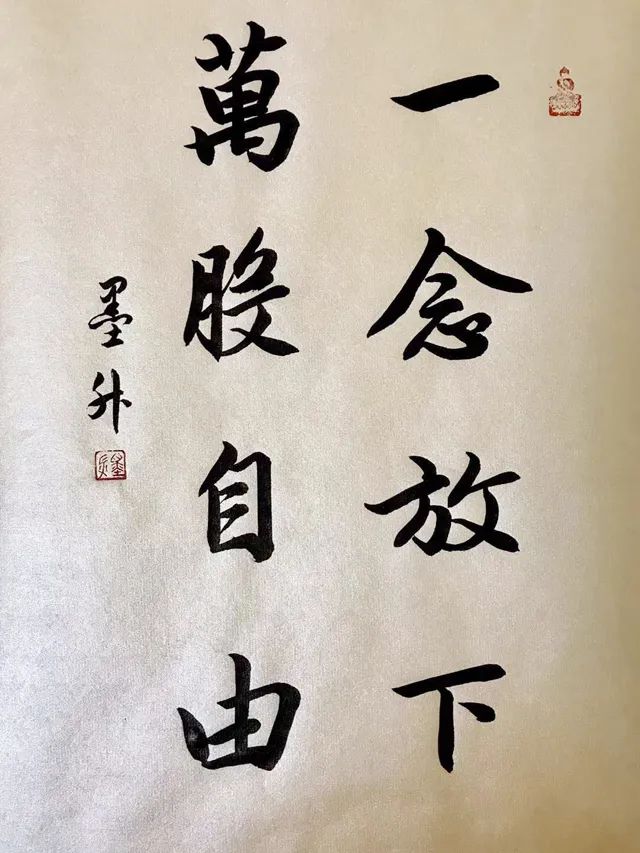 一念放下
萬般自由
墨升